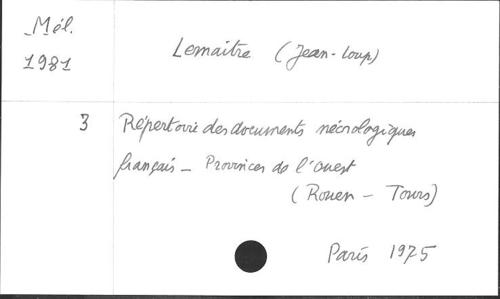 Mél.
1981
Lemaitre (Jean-Loup)
3
Répertoire des documents nécrologiques
français - Provinces de l'ouest
(Rouen - Tours)
Paris 1975